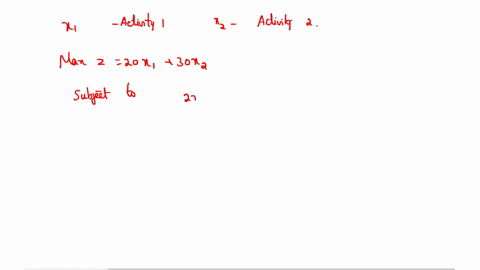 x₁ - Activity 1 x₂ - Activity 2.
Max z = 20x₁ + 30x₂
Subject to 2